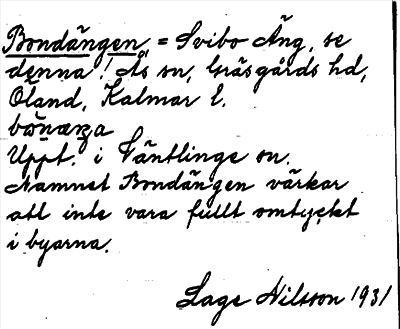 Bondängen, = Svibo Äng, se
denna! Ås sn, Gräsgårds hd,
Öland, Kalmar l.
Uppt. i Väntlinge sn.
Namnet Bondängen värkar
att inte vara fullt omtyckt
i byarna.
Lage Nilsson 1931